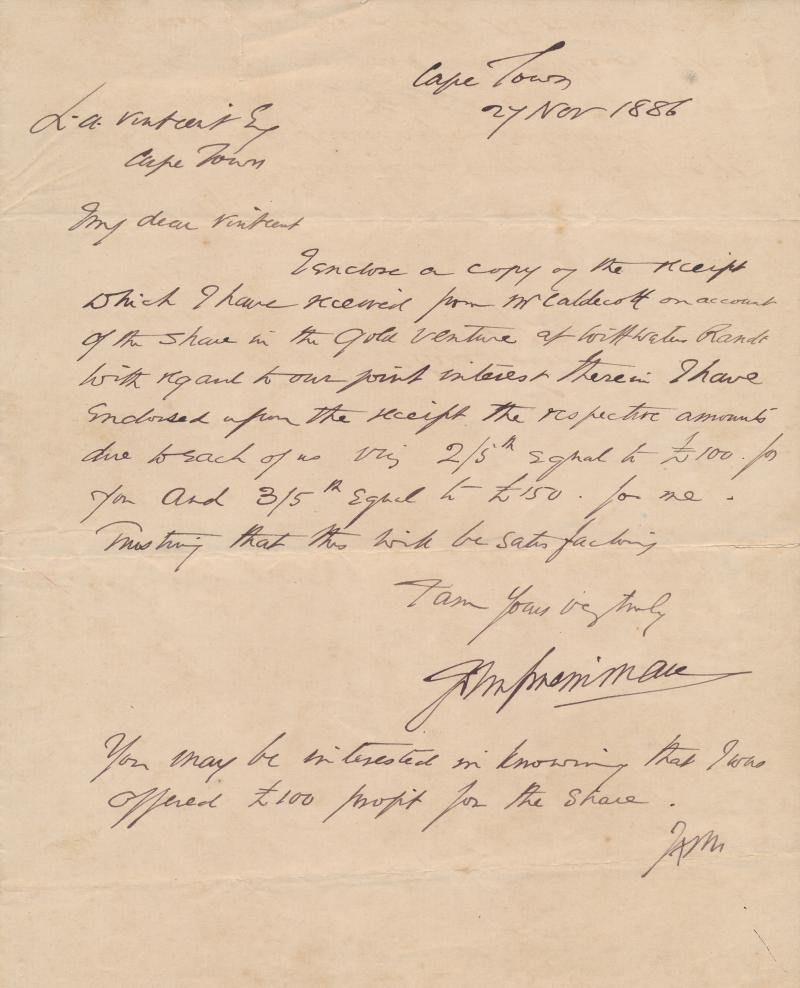 Cape Town
27 Nov 1886
L. A. Vintcent Esq
Cape Town
My dear Vintcent
I enclose a copy of the receipt
which I have received from Mr Caldecott on account
of the share in the Gold Venture at Wittwaters Randt
With regard to our joint interest therein I have
Endorsed upon the receipt the respective amounts
due to Each of us viz 2/5th Equal to £100. for
you And 3/5th Equal to £150. for me.
Trusting that this will be satisfactory
I am Yours very truly
John X. Merriman
You may be interested in knowing that I was
offered £100 profit for the Share.
JXM